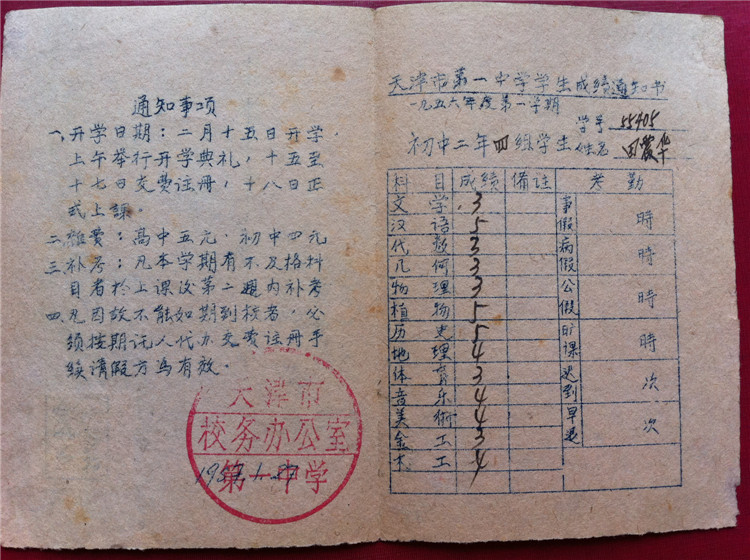 通知事项
一、开学日期：二月十五日开学，
上午举行开学典礼，十五至
十七日交费注册，十八日正
式上課。
二、雜費：高中五元，初中四元
三、补考：凡本学期有不及格科
目者於上课后第二週内补考
四、凡因故不能如期到校者，必
须按期託人代办交费註册手
续请假方為有效。
天津市
校务办公室
第一中学
天津市第一中学学生成绩通知书
一九五六年度第一学期
学号 55405
初中二年四组学生 姓名 田震华
科目 成绩 备註 考勤
文学 3 事假 時
汉语 5
代数 3 病假 時
几何 3
物理 3 公假 時
植物 5
历史 5 旷课 時
地理 4
体育 3 迟到 次
音乐 4
美術 4 早退 次
金工 3
木工 4